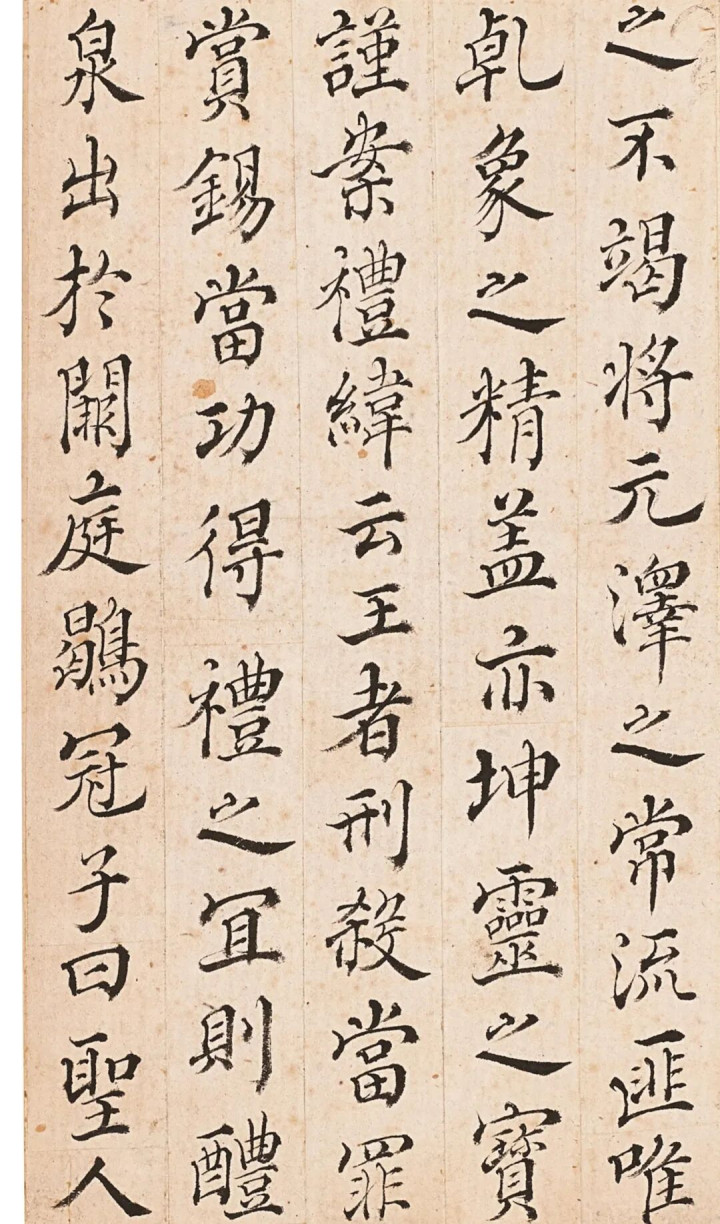 之不竭將元澤之常流匪唯
乹象之精盖亦坤靈之寶
謹案禮緯云王者刑殺當罪
賞錫當功得禮之宜則醴
泉出於闕庭鶡冠子曰聖人